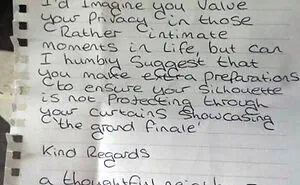 I'd Imagine you Value
your Privacy in those
Rather intimate
moments in Life, but can
I humbly Suggest that
you make extra preparations
to ensure your Silhouette
is not Protecting through
your curtains Showcasing
'the grand finale'
Kind Regards
a thoughtful neighb